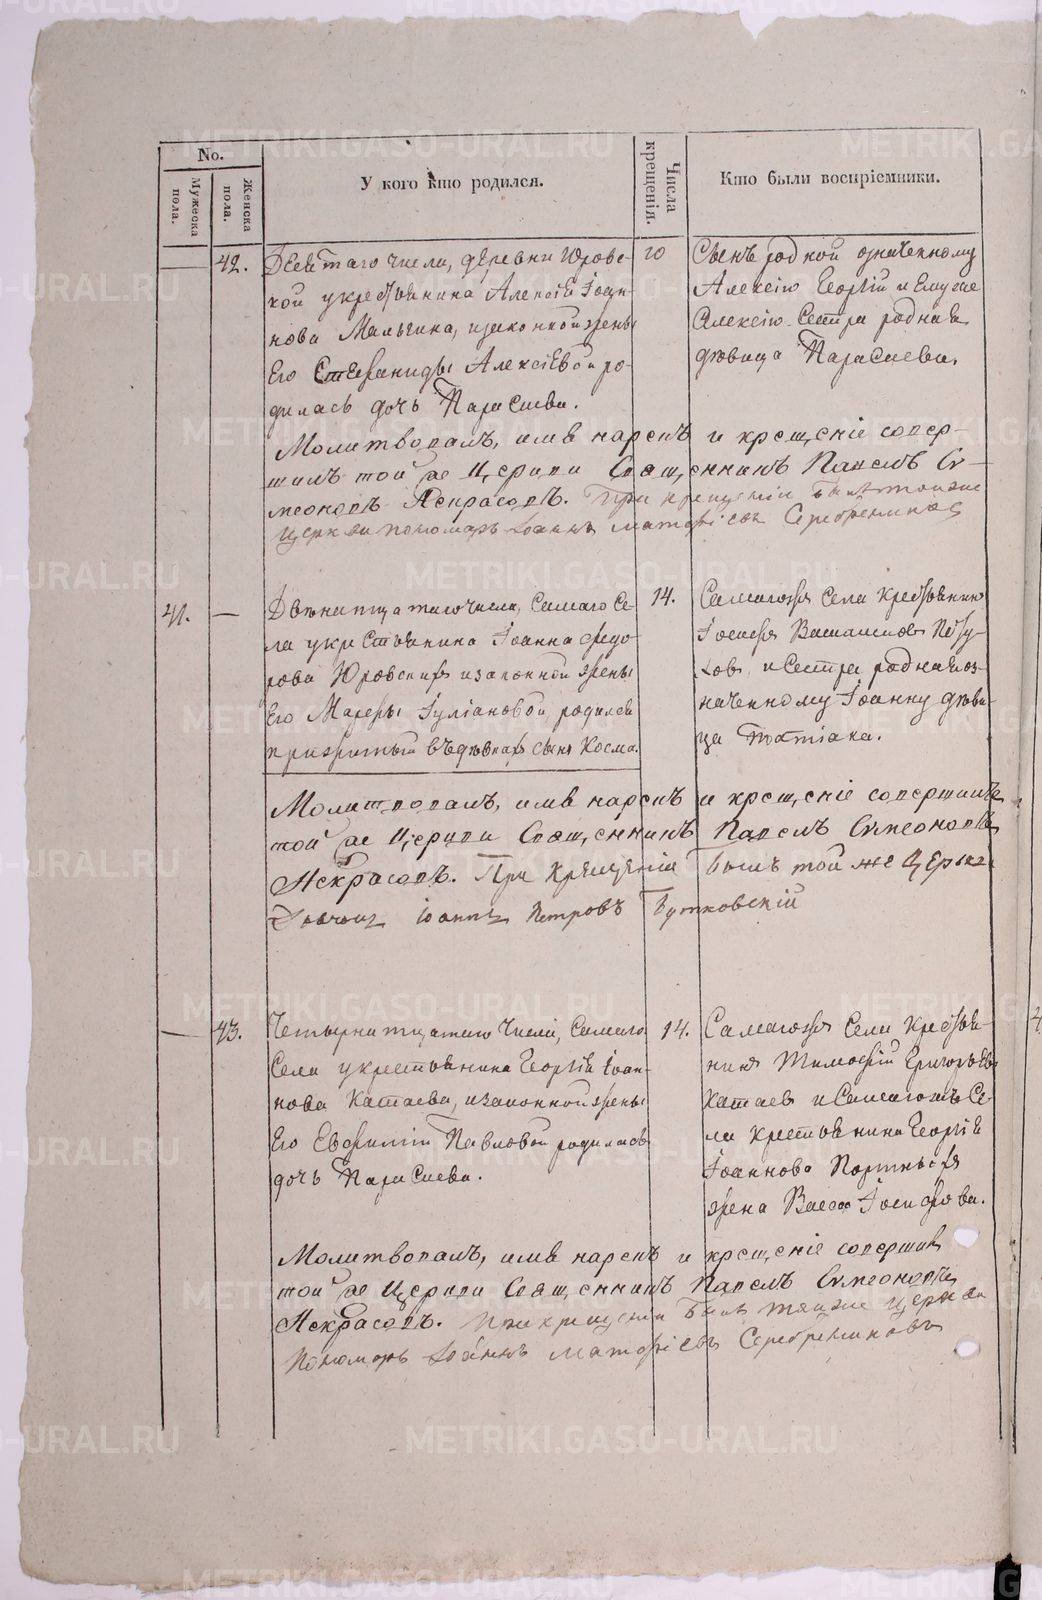 No.
Мужеска пола.
Женска пола.
У кого кто родился.
Числа крещенія.
Кто были воспріемники.
42.
Девятаго числа, деревни Юровс-
кой у крестьянина Алексія Іоан-
нова Мальгина, и законной жены
Его Стефаниды Алексіевой ро-
дилась дочь Параскева.
10
Сынъ родной означенному
Алексію Георгій и Ему же
Алексію Сестра родная
дѣвица Параскева.
Молитвовалъ, имя нарекъ и крещеніе совер-
шилъ той же Церкви Священникъ Павелъ Си-
меоновъ Некрасовъ. При крещеніи былъ тойже
Церкви пономарь Іоаннъ Матфіевъ Серебрениковъ
41.
Двѣнатцатаго числа, Самаго Се-
ла у крестьянина Іоанна Федо-
рова Юровскихъ и законной жены
Его Марѳы Іуліановой родился
сынъ Косма.
14.
Самагожъ Села крестьянинъ
Іосифъ
и Сестра родная оз-
наченному Іоанну дѣви-
ца Татіана.
Молитвовалъ, имя нарекъ и крещеніе совершилъ
той же Церкви Священникъ Павелъ Симеоновъ
Некрасовъ. При Крещеніи былъ той же Церкви
Дьячокъ Іоаннъ Петровъ Бутковскій
43.
Четырнатцатаго Числа, Самаго
Села у крестьянина Георгія Іоан-
нова Катаева, и законной жены
Его Евфиміи Павловой родилась
дочь Параскева.
14.
Самагожъ Села крестья-
нинъ Тимофій Григорьевъ
Катаев и Самагожъ Се-
ла крестьянина Георгія
Іоаннова Портныхъ
жена Васса Іосифова.
Молитвовалъ, имя нарекъ и крещеніе совершилъ
той же Церкви Священникъ Павелъ Симеоновъ
Некрасовъ. При крещеніи былъ тойже Церкви
Пономарь Іоаннъ Матфіевъ Серебрениковъ
METRIKI.GASO-URAL.RU